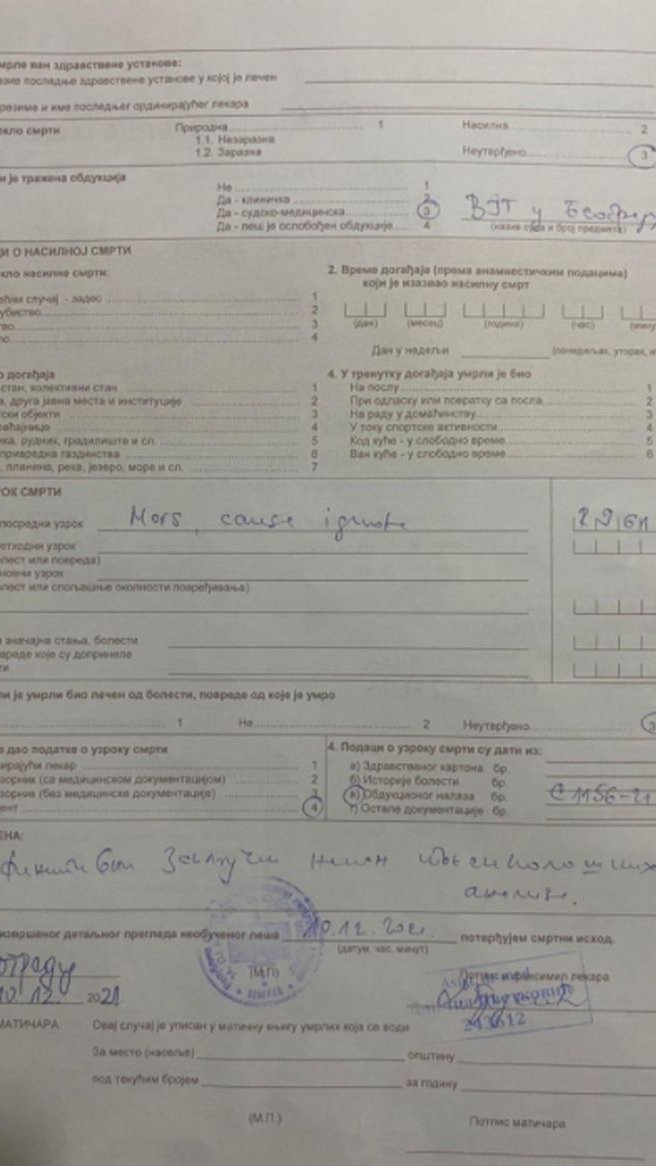 умрле ван здравствене установе:
назив последње здравствене установе у којој је лечен
презиме и име последњег ординирајућег лекара
кло смрти Природна 1 Насилна 2
1.1. Незаразна
1.2. Заразна Неутврђено 3
и је тражена обдукција
Не 1
Да - клиничка 2
Да - судско-медицинска 3 ВЈТ у Београду
Да - леш је ослобођен обдукције 4 (назив суда и број предмета)
И О НАСИЛНОЈ СМРТИ
кло насилне смрти: 2. Време догађаја (према анамнестичким подацима)
који је изазвао насилну смрт
ећни случај - задес 1
убиство 2
тво 3 (дан) (месец) (година) (час)
4
Дан у недељи (понедељак, уторак,
о догађаја 4. У тренутку догађаја умрли је био
стан, колективни стан 1 На послу 1
а, друга јавна места и институције 2 При одласку или повратку са посла 2
ски објекти 3 На раду у домаћинству 3
раћајнице 4 У току спортске активности 4
ика, рудник, градилиште и сл. 5 Код куће - у слободно време 5
привредна газдинства 6 Ван куће - у слободно време 6
, планина, река, језеро, море и сл. 7
РОК СМРТИ
посредни узрок Mors, cause ignote
етходни узрок
лест или повреда)
новни узрок
лест или спољашње околности повређивања)
и значајна стања, болести
вреде које су допринеле
ти.
ли је умрли био лечен од болести, повреде од које је умро
1 Не 2 Неутврђено 3
е дао податке о узроку смрти 4. Подаци о узроку смрти су дати из:
ирајући лекар 1 а) Здравственог картона бр.
зорник (са медицинском документацијом) 2 б) Историје болести бр.
зорник (без медицинске документације) 3 в) Обдукционог налаза бр. С 1156-21
ент 4 г) Остале документације бр.
ЕНА:
анализе.
извршеног детаљног прегледа необученог леша 10.12.2021. потврђујем смртни исход.
(датум, час, минут)
ограду (М.П) Потпис и факсимил лекара
10.12. 2021
243612
МАТИЧАРА: Овај случај је уписан у матичну књигу умрлих која се води
За место (насеље) општину
под текућим бројем за годину
(М.П.) Потпис матичара